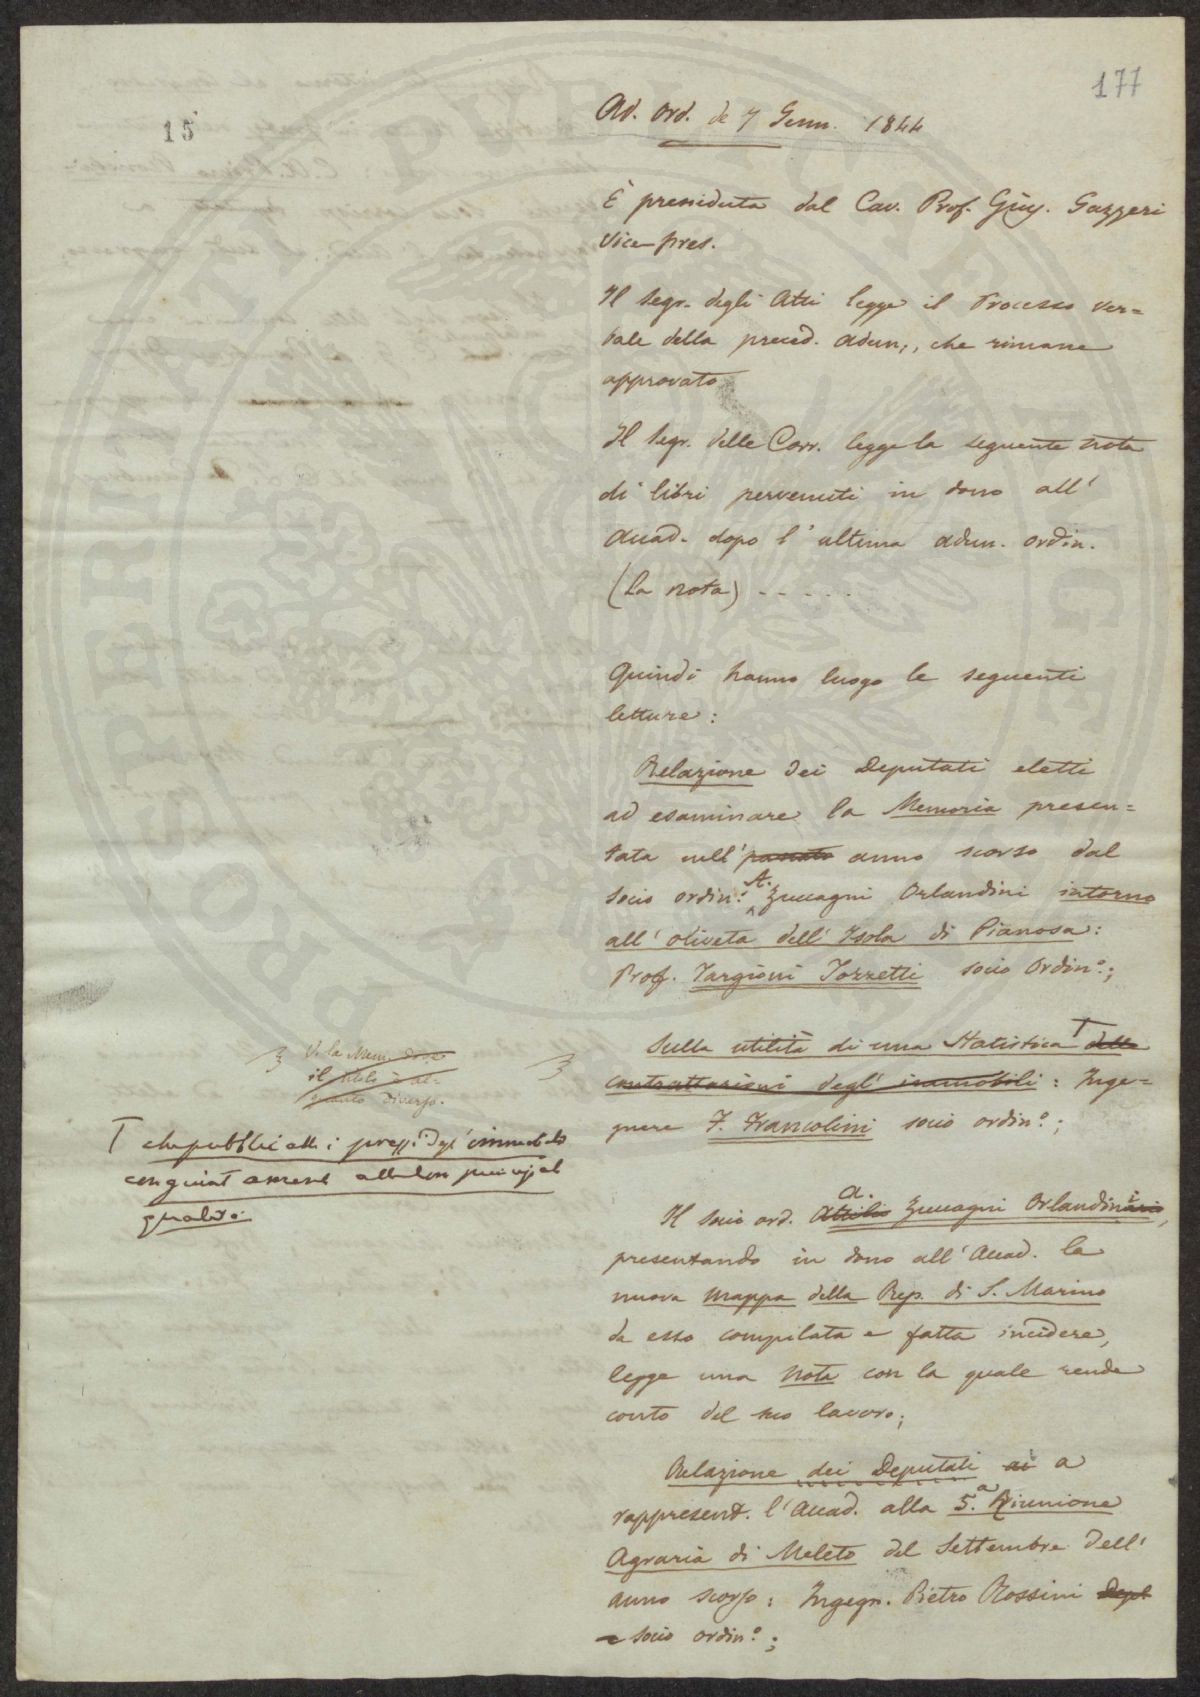 177
15
Ad. ord. de 7 Genn. 1844
È presieduta dal Cav. Prof. Gius. Gazzeri
Vice-pres.
Il segr. degli Atti legge il Processo ver=
bale della preced. adun., che rimane
approvato
Il segr. delle Corr. legge la seguente nota
di libri pervenuti in dono all'
Accad. dopo l'ultima adun. ordin.
(La nota) - - - - -
Quindi hanno luogo le seguenti
letture:
Relazione dei Deputati eletti
ad esaminare la Memoria presen=
tata nell' passato anno scorso dal
socio ordin.º A. Zuccagni Orlandini intorno
all' oliveta dell' Isola di Pianosa:
Prof. Targioni Tozzetti socio Ordin.º;
V. la Mem. dove
il titolo è al-
quanto diverso.
Sulla utilità di una Statistica T delle
contrattazioni degl' immobili: Inge=
gnere F. Francolini socio ordin.º;
T che pubblichi i prezzi degl' immobili
congiuntamente alle loro principali
qualità:
Il socio ord. Attilio a. Zuccagni Orlandini,
presentando in dono all' Accad. la
nuova mappa della Rep. di S. Marino
da esso compilata e fatta incidere,
legge una nota con la quale rende
conto del suo lavoro;
Relazione dei Deputati ai a
rappresent. l'Accad. alla 5.ª Riunione
Agraria di Meleto del Settembre dell'
anno scorso: Ingegn. Pietro Rossini Dept.
e socio ordin.º;